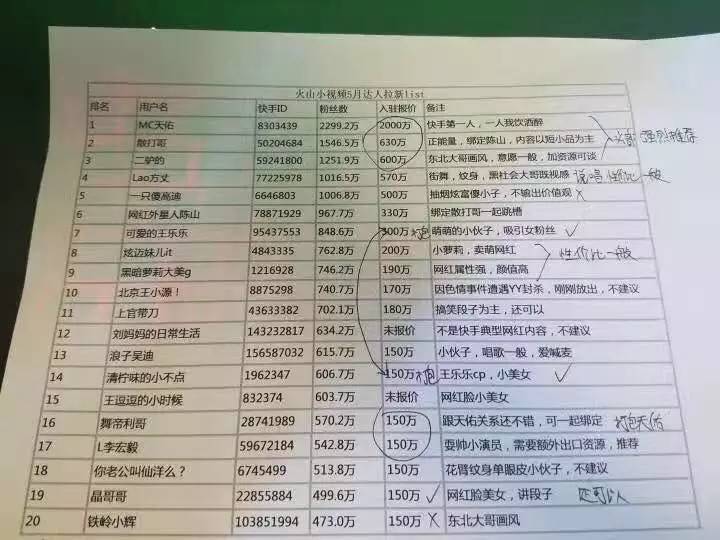 火山小视频5月达人拉新list
排名 用户名 快手ID 粉丝数 入驻报价 备注
1 MC天佑 8303439 2299.2万 2000万 快手第一人，一人我饮酒醉
2 散打哥 50204684 1546.5万 630万 正能量，绑定陈山，内容以短小品为主 强烈推荐
3 二驴的 59241800 1251.9万 600万 东北大哥画风，意愿一般，加资源可谈
4 Lao方丈 77225978 1016.5万 570万 街舞，纹身，黑社会大哥既视感 说唱 性价比一般
5 一只傻高迪 6646803 1006.8万 500万 抽烟炫富傻小子，不输出价值观 ×
6 网红外星人陈山 78871929 967.7万 330万 绑定散打哥一起跳槽
7 可爱的王乐乐 95437553 848.6万 300万 打包 萌萌的小伙子，吸引女粉丝 ✓
8 炫迈妹儿it 4843335 762.8万 200万 小萝莉，卖萌网红 性价比一般
9 黑暗萝莉大美g 1216928 746.2万 190万 网红属性强，颜值高
10 北京王小源！ 8875298 740.7万 170万 因色情事件遭遇YY封杀，刚刚放出，不建议
11 上官带刀 43633382 702.1万 180万 搞笑段子为主，还可以
12 刘妈妈的日常生活 143232817 634.2万 未报价 不是快手典型网红内容，不建议
13 浪子吴迪 156587032 615.7万 150万 小伙子，唱歌一般，爱喊麦
14 清柠味的小不点 1962347 606.7万 150万 打包 王乐乐cp，小美女 ✓
15 王逗逗的小时候 832374 603.7万 未报价 网红脸小美女
16 舞帝利哥 28741989 570.2万 150万 跟天佑关系还不错，可一起绑定 打包天佑
17 L李宏毅 59672184 542.8万 150万 耍帅小演员，需要额外出口资源，推荐
18 你老公叫仙洋么？ 6745499 513.8万 150万 花臂纹身单眼皮小伙子，不建议
19 晶哥哥 22855884 499.6万 150万 ✓ 网红脸美女，讲段子 还可以
20 铁岭小辉 103851994 473.0万 150万 × 东北大哥画风